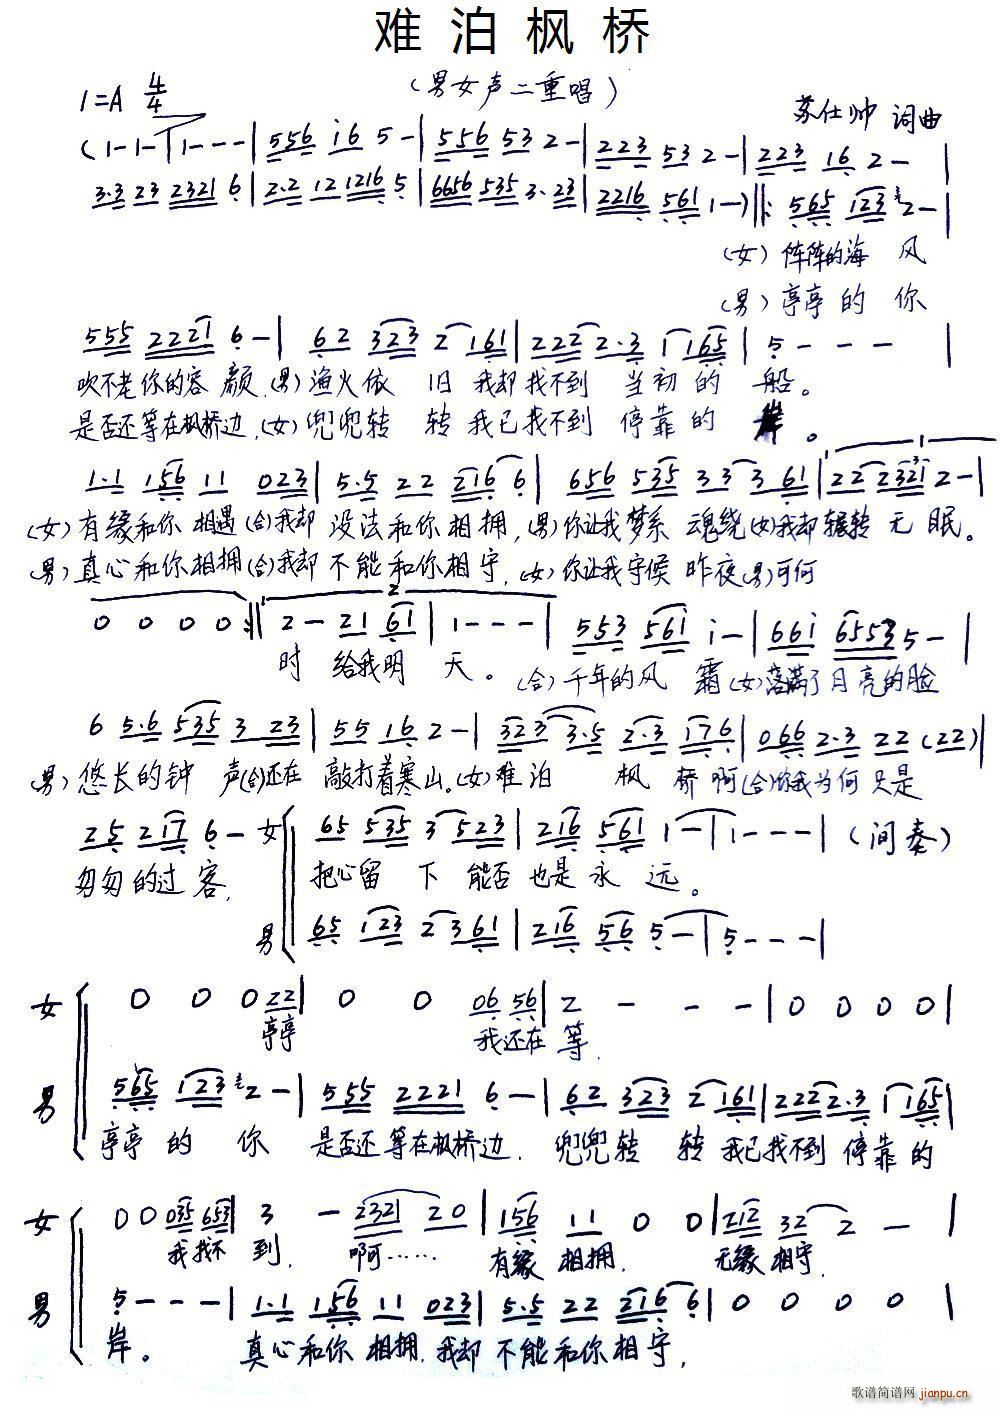 难泊枫桥
(男女声二重唱)
1=A 4/4
苏仕帅 词曲
(1-1-|1---|556 i6 5-|556 53 2-|223 53 2-|223 16 2-|
3·3 23 2321 6|2·2 12 1216 5|6656 535 3·23|2216 561 1-)‖: 565 123 2-|
(女)阵阵的海 风
(男)亭亭的 你
555 2221 6-|62 323 2 161|222 2·3 1 165|5---|
吹不老你的容颜,(男)渔火依 旧 我却找不到 当初的 船。
是否还等在枫桥边,(女)兜兜转 转 我已找不到 停靠的 岸。
1·1 156 11 023|5·5 22 216 6|656 535 33 3 61|22 2321 2-|
(女)有缘和你 相遇(合)我却 没法和你相拥,(男)你让我梦系 魂绕(女)我却辗转无眠。
(男)真心和你相拥(合)我却不能和你相守,(女)你让我守候 昨夜(男)可何
0 0 0 0:‖2-21 61|1---|553 561 i-|66i 6553 5-|
时 给我明 天。(合)千年的风 霜(女)落满了月亮的脸
6 5·6 535 3 23|55 16 2-|323 3·5 2·3 176|066 2·3 22 (22)|
男)悠长的钟 声(合)还在 敲打着寒山。(女)难泊 枫 桥啊(合)你我为何只是
25 217 6- 女 65 535 3 523|216 561 1-|1---|(间奏)
匆匆的过客, 把心留 下 能否也是永 远。
男 65 123 2 361|216 56 5-|5---|
女 0 0 0 22|0 0 06 56|2---|0 0 0 0|
亭亭 我还在 等,
男 565 123 2-|555 2221 6-|62 323 2 161|222 2·3 1 165|
亭亭的 你 是否还等在枫桥边, 兜兜转 转 我已找不到 停靠的
女 0 0 035 653|3 - 2321 20|156 11 0 0|212 32 2 -|
我找不 到, 啊…… 有缘 相拥, 无缘相守,
男 5---|1·1 156 11 023|5·5 22 216 6|0 0 0 0|
岸。 真心和你 相拥,我却 不能和你相守,
歌谱简谱网 jianpu.cn